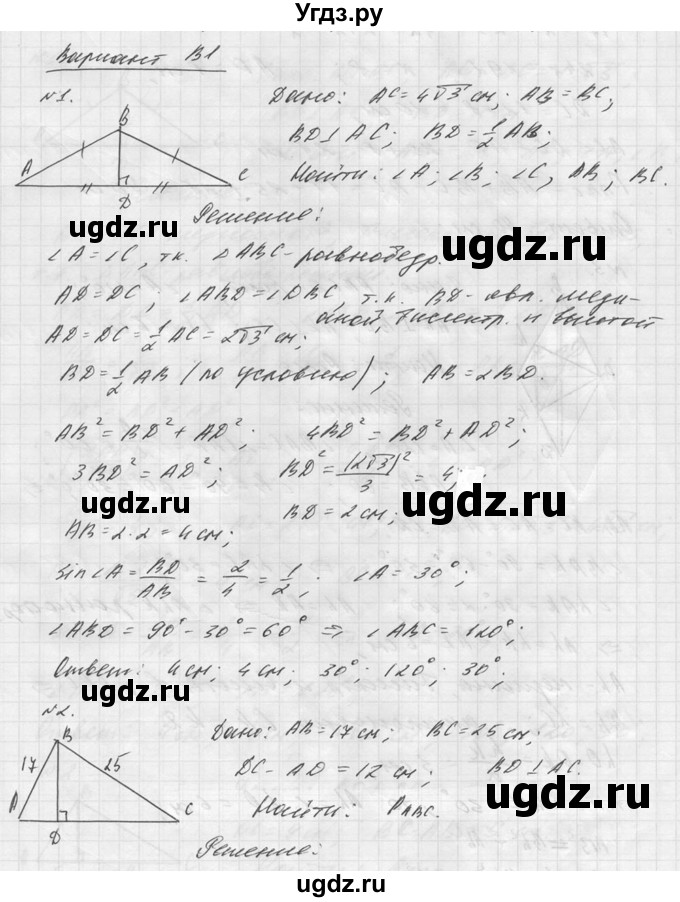 Угдз.ру
Вариант В1
№1.
Дано: AC = 4√3 см; AB = BC;
BD ⊥ AC; BD = 1/2 AB;
Найти: ∠A; ∠B; ∠C, AB; BC.
B
A
C
D
Решение:
ugdz.ru
ugdz.ru
∠A = ∠C, т.к. △ABC - равнобедр.
AD = DC; ∠ABD = ∠DBC, т.к. BD - явл. меди-
аной, биссектр. и высотой
AD = DC = 1/2 AC = 2√3 см;
BD = 1/2 AB (по условию); AB = 2BD.
AB² = BD² + AD²; 4BD² = BD² + AD²;
3BD² = AD²; BD² = (2√3)²/3 = 4;
ugdz.ru
ugdz.ru
BD = 2 см;
AB = 2·2 = 4 см;
sin∠A = BD/AB = 2/4 = 1/2; ∠A = 30°;
∠ABD = 90° - 30° = 60° ⇒ ∠ABC = 120°;
Ответ: 4 см; 4 см; 30°; 120°; 30°;
ugdz.ru
№2.
Дано: AB = 17 см; BC = 25 см;
DC - AD = 12 см; BD ⊥ AC.
Найти: P ABC.
B
17
25
A
C
D
ugdz.ru
Решение:
ugdz.ru